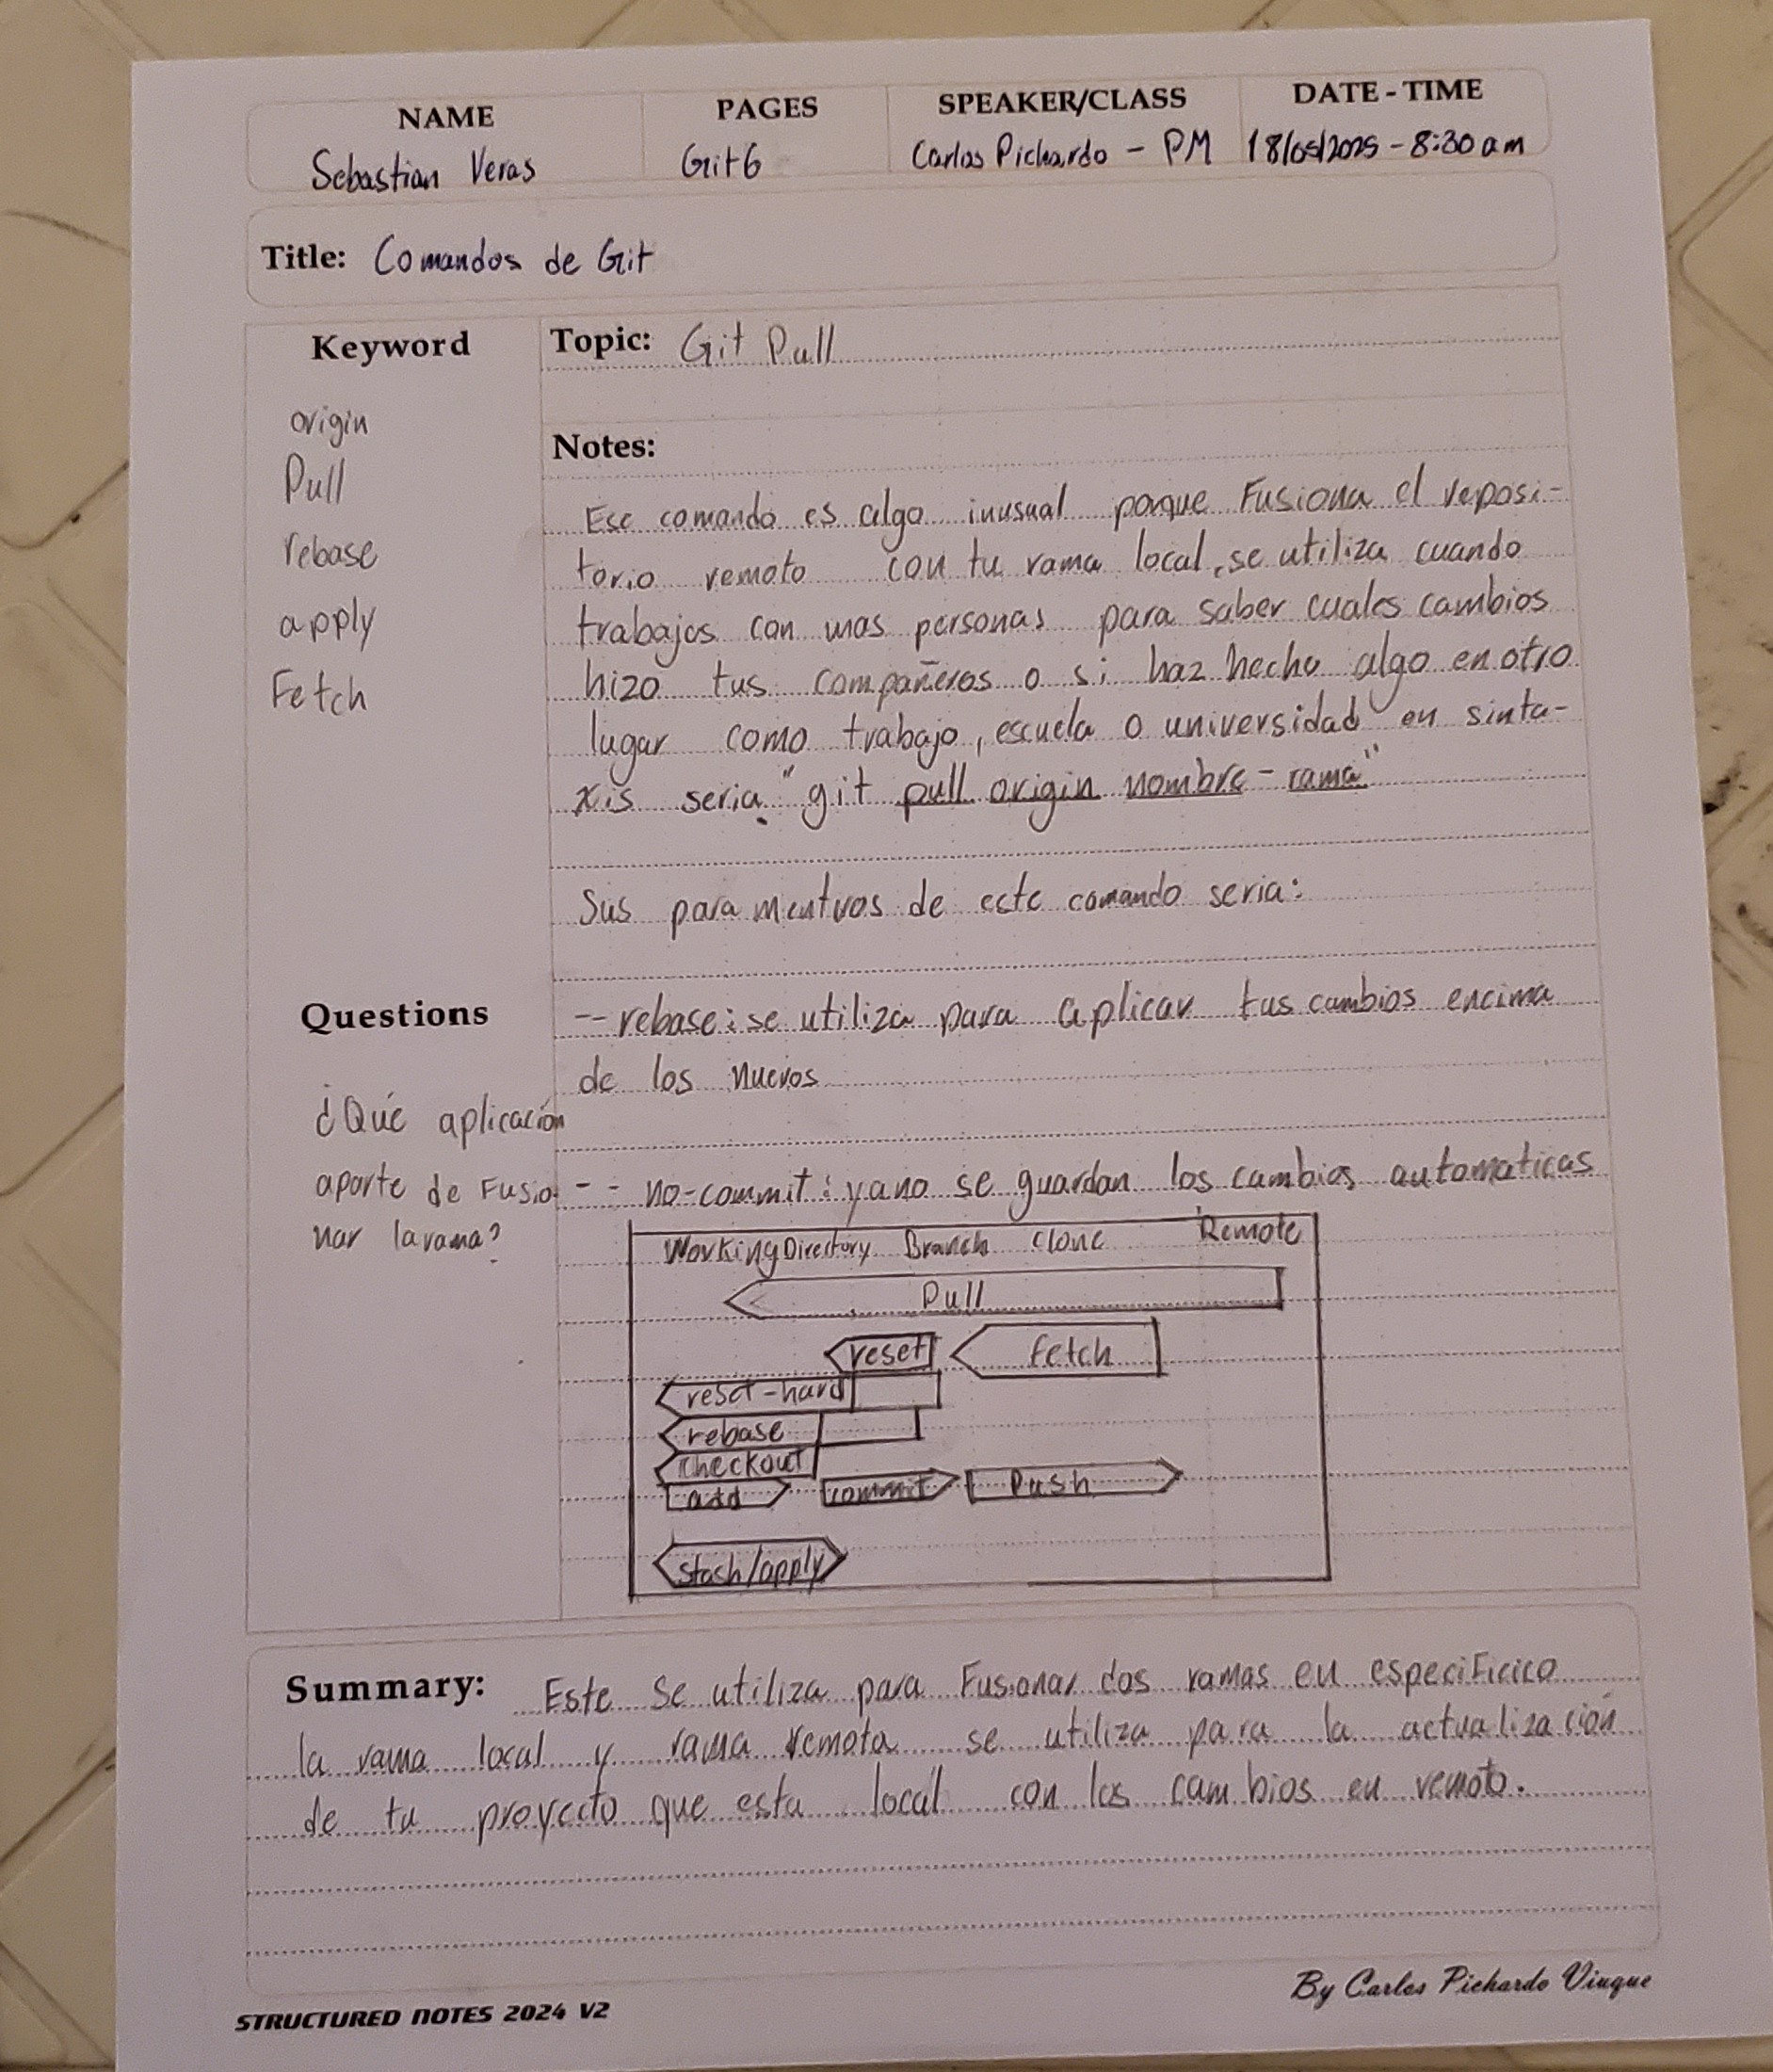 NAME PAGES SPEAKER/CLASS DATE - TIME
Sebastian Veras Git6 Carlos Pichardo - PM 18/05/2025 - 8:30 am
Title: Comandos de Git
Keyword
origin
Pull
rebase
apply
Fetch
Topic: Git Pull
Notes:
Ese comando es algo inusual porque Fusiona el reposi-
torio remoto con tu rama local, se utiliza cuando
trabajas con mas personas para saber cuales cambios
hizo tus compañeros o si haz hecho algo en otro
lugar como trabajo, escuela o universidad en sinta-
xis seria "git pull origin nombre-rama"
Sus paramentros de este comando seria:
-- rebase: se utiliza para aplicar tus cambios encima
de los nuevos
-- no-commit: ya no se guardan los cambios automaticas
Questions
¿Qué aplicación
aparte de Fusio-
nar la rama?
Working Directory Branch Clone Remote
Pull
reset Fetch
reset-hard
rebase
checkout
add commit Push
stash/apply
Summary: Este se utiliza para Fusionar dos ramas en especificico
la rama local y rama remota se utiliza para la actualización
de tu proyecto que esta local con los cambios en remoto.
STRUCTURED NOTES 2024 V2
By Carlos Pichardo Viuque